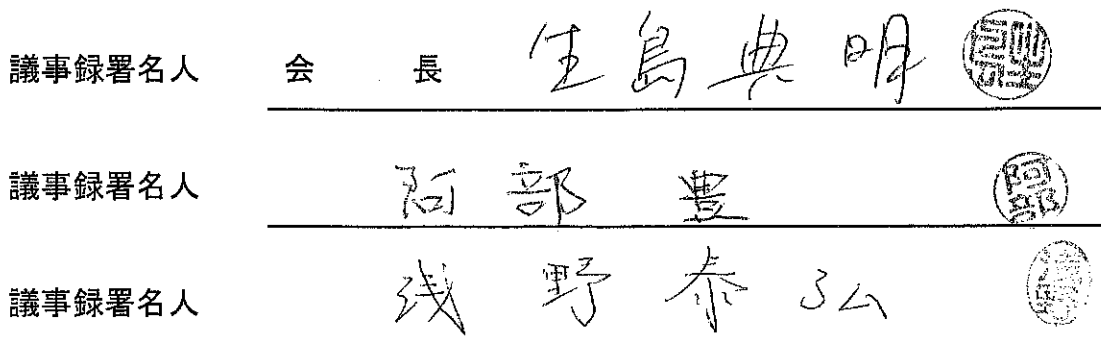 議事録署名人 会 長 生島典明
議事録署名人 阿部 豊 阿部
議事録署名人 浅野泰弘